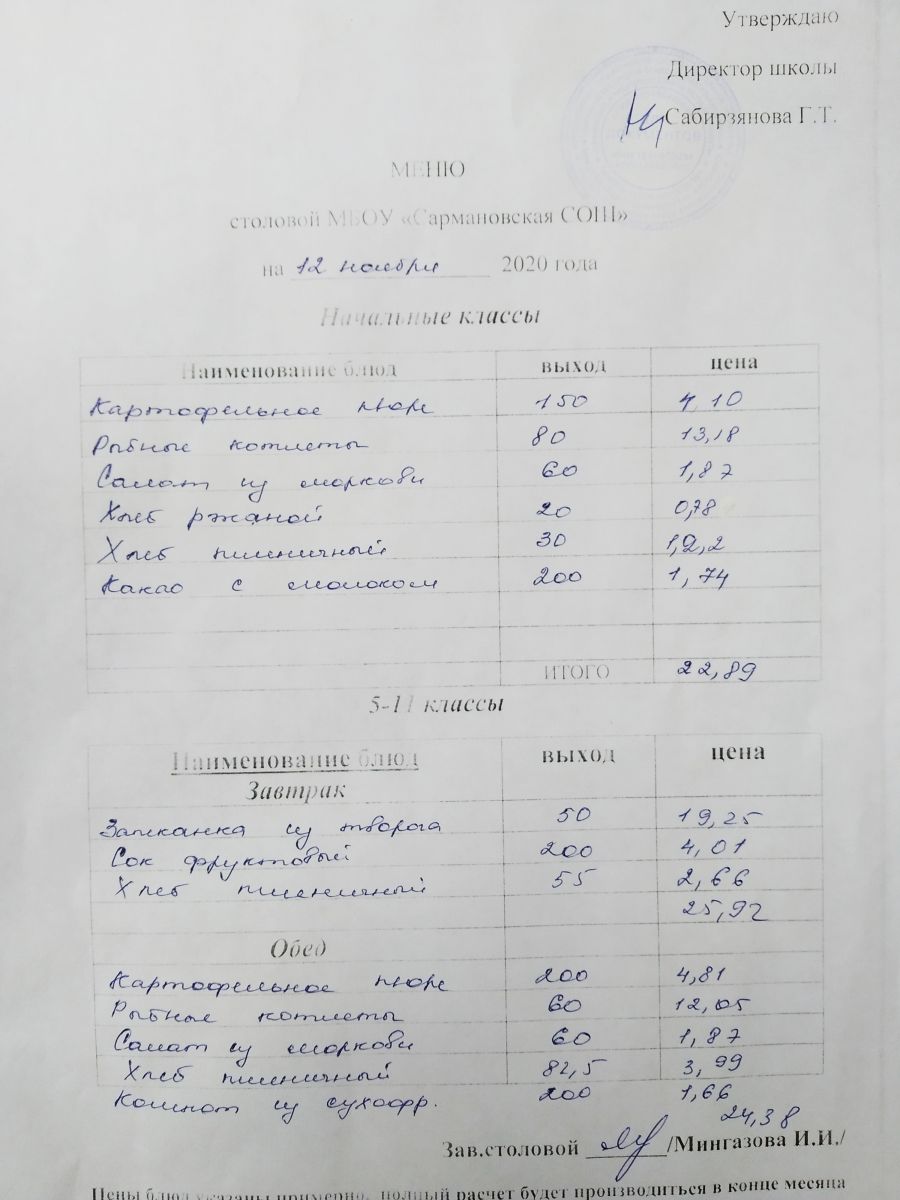 Утверждаю
Директор школы
Сабирзянова Г.Т.
МЕНЮ
столовой МБОУ «Сармановская СОШ»
на 12 ноября 2020 года
Начальные классы
Наименование блюд выход цена
Картофельное пюре 150 4,10
Рыбные котлеты 80 13,18
Салат из моркови 60 1,87
Хлеб ржаной 20 0,78
Хлеб пшеничный 30 1,2,2
Какао с молоком 200 1,74
ИТОГО 22,89
5-11 классы
Наименование блюд выход цена
Завтрак
Запеканка из творога 50 19,25
Сок фруктовый 200 4,01
Хлеб пшеничный 55 2,66
25,92
Обед
Картофельное пюре 200 4,81
Рыбные котлеты 60 12,05
Салат из моркови 60 1,87
Хлеб пшеничный 82,5 3,99
Компот из сухофр. 200 1,66
24,38
Зав.столовой /Мингазова И.И./
Цены блюд указаны примерно, полный расчет будет производиться в конце месяца